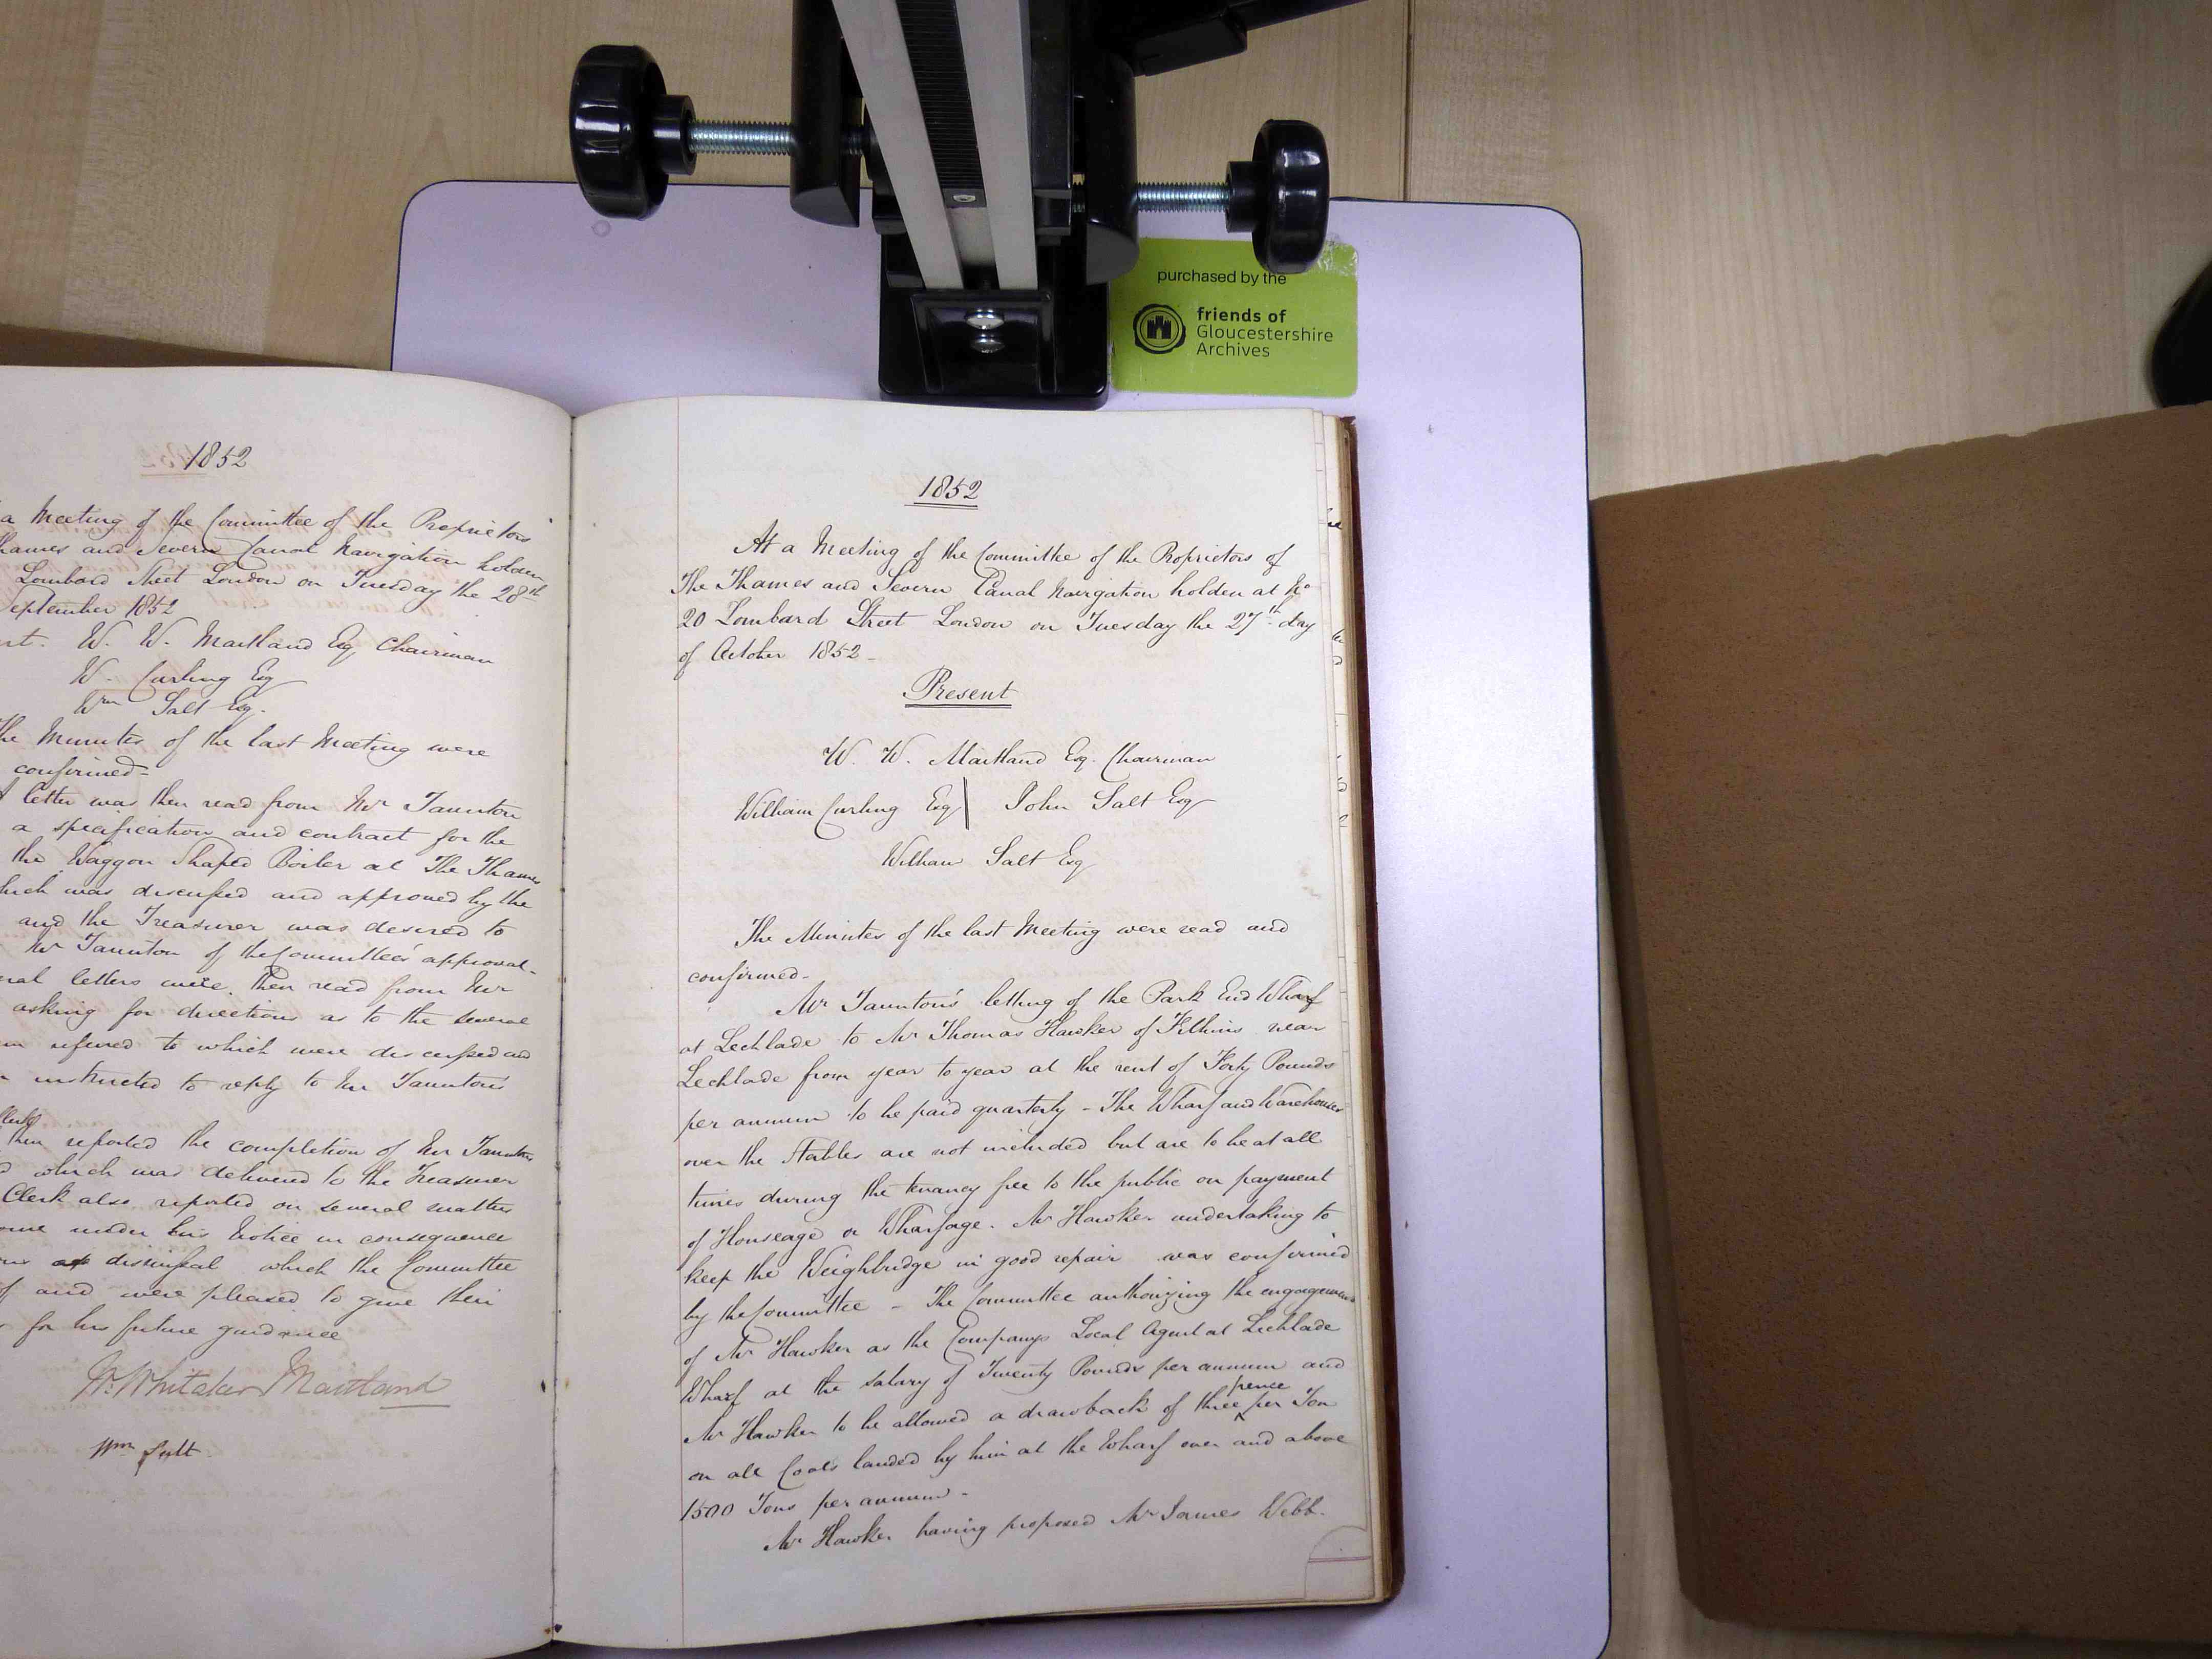 purchased by the
friends of
Gloucestershire
Archives
1852
a Meeting of the Committee of the Proprietors
Thames and Severn Canal Navigation holden
Lombard Street London on Tuesday the 28th
September 1852
W. W. Maitland Esq Chairman
W. Curling Esq
Wm Salt Esq.
The Minutes of the last Meeting were
confirmed-
A letter was then read from Mr Taunton
a specification and contract for the
the Waggon Shaped Boiler at The Thames
which was discussed and approved by the
and the Treasurer was desired to
Mr Taunton of the Committee's approval-
letters were then read from Mr
asking for directions as to the several
refered to which were discussed and
instructed to reply to Mr Taunton's
Clerk
then reported the completion of Mr Taunton's
which was delivered to the Treasurer
Clerk also reported on several matters
come under his Notice in consequence
dismissal which the Committee
and were pleased to give their
for his future guidance
W. Whitaker Maitland
Wm Salt.
1852
At a Meeting of the Committee of the Proprietors of
The Thames and Severn Canal Navigation holden at No
20 Lombard Street London on Tuesday the 27th day
of October 1852-
Present
W. W. Maitland Esq. Chairman
William Curling Esq | John Salt Esq
William Salt Esq
The Minutes of the last Meeting were read and
confirmed-
Mr Taunton's letting of the Park End Wharf
at Lechlade to Mr Thomas Hawker of Filkins near
Lechlade from year to year at the rent of Forty Pounds
per annum to be paid quarterly - The Wharf and Warehouses
over the Stables are not included but are to be at all
times during the tenancy free to the public on payment
of Houseage or Wharfage. Mr Hawker undertaking to
keep the Weighbridge in good repair was confirmed
by the Committee - The Committee authorizing the engagement
of Mr Hawker as the Companys Local Agent at Lechlade
Wharf at the salary of Twenty Pounds per annum and
Mr Hawker to be allowed a drawback of three pence per Ton
on all Coals landed by him at the Wharf over and above
1500 Tons per annum -
Mr Hawker having proposed Mr James Webb.